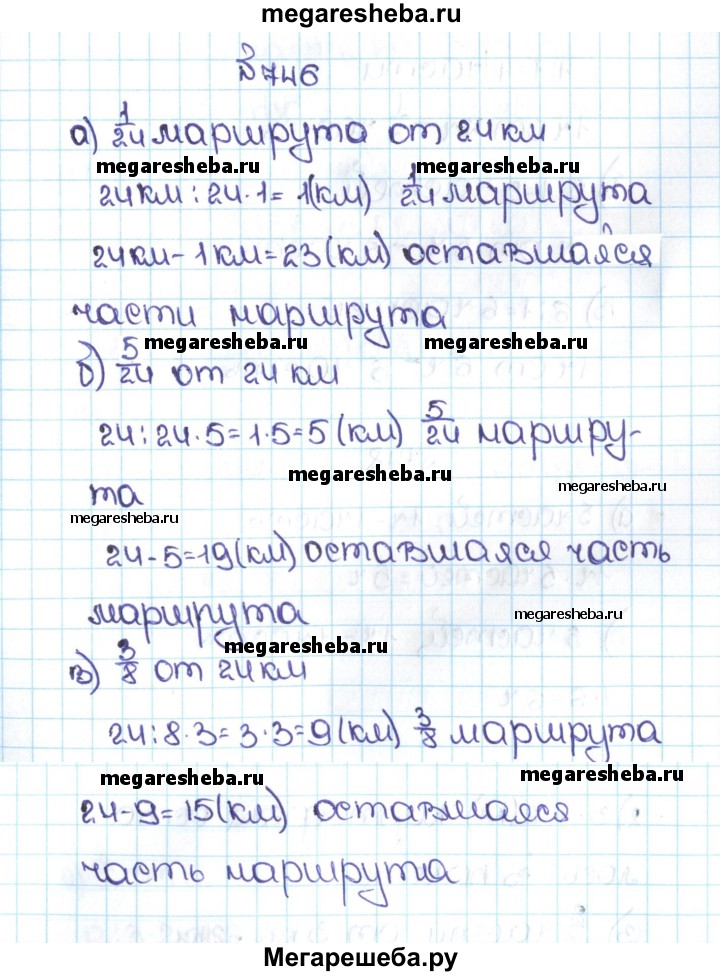 megaresheba.ru
№746
а) 1/24 маршрута от 24км.
megaresheba.ru megaresheba.ru
24км:24·1=1(км) 1/24 маршрута
24км-1км=23(км) оставшайся
части маршрута
megaresheba.ru megaresheba.ru
б) 5/24 от 24км
24:24·5=1·5=5(км) 5/24 маршру-
megaresheba.ru megaresheba.ru
та
megaresheba.ru
24-5=19(км) оставшаяся часть
маршрута megaresheba.ru
megaresheba.ru
в) 3/8 от 24км
24:8·3=3·3=9(км) 3/8 маршрута
megaresheba.ru megaresheba.ru
24-9=15(км) оставшаяся
часть маршрута
Мегарешеба.ру